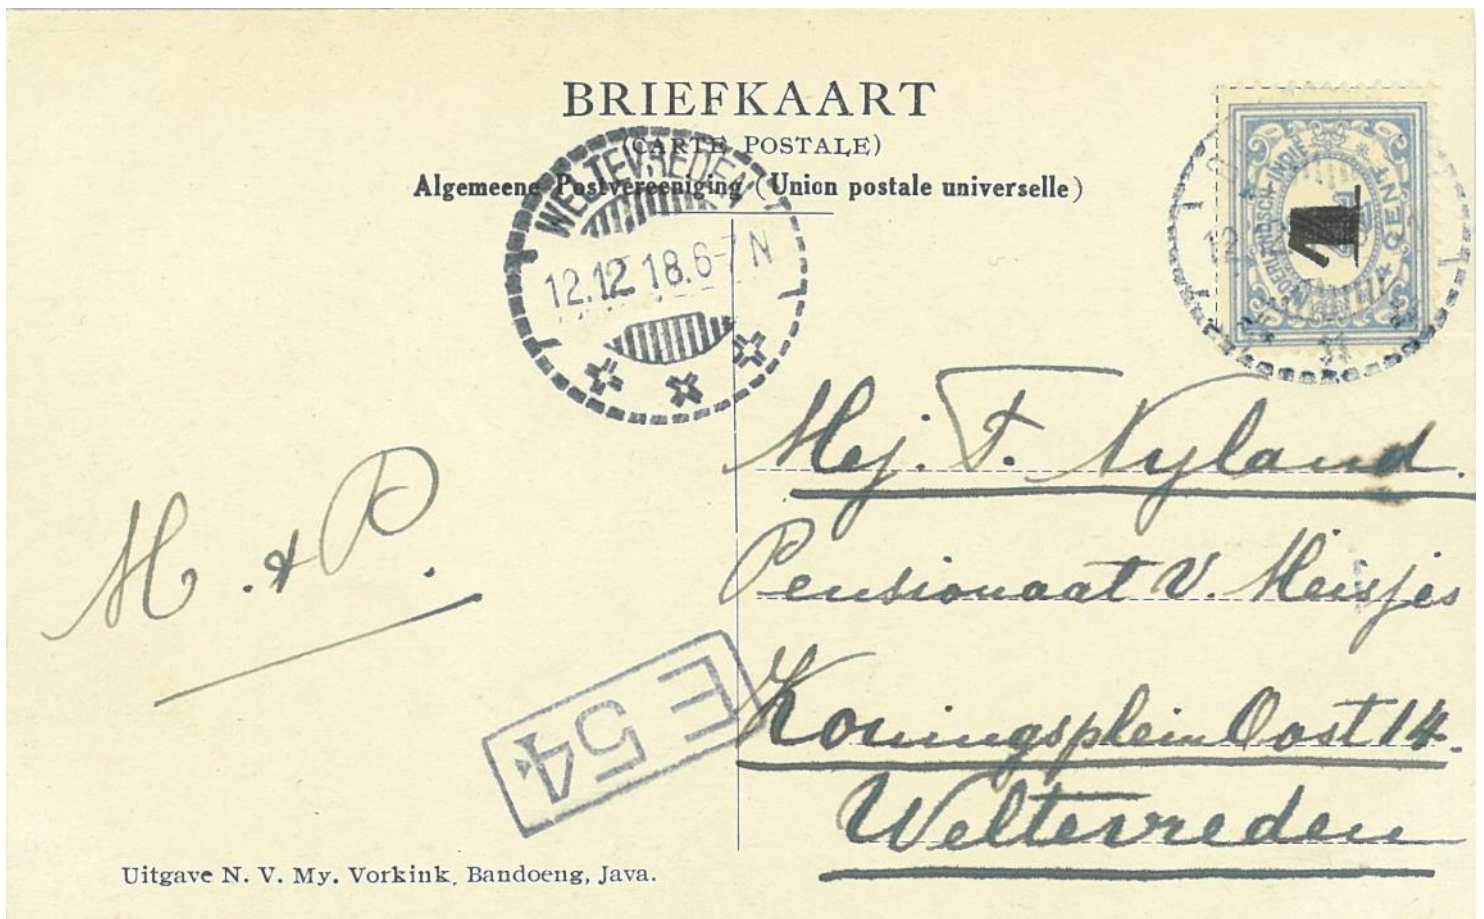 BRIEFKAART
(CARTE POSTALE)
Algemeene Postvereeniging (Union postale universelle)
WELTEVREDEN
12.12.18.6-7 N
NEDERLANDSCH-INDIË
CENT
1
Mej. F. Nyland.
Pensionaat v. Meisjes
Koningsplein Oost 14.
Weltevreden
M. & P.
E 54
Uitgave N. V. My. Vorkink, Bandoeng, Java.